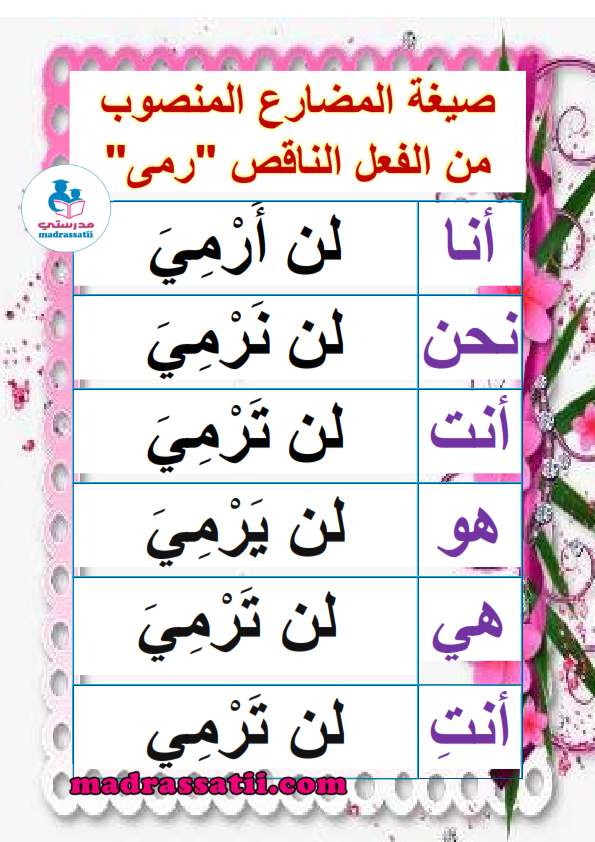 صيغة المضارع المنصوب
من الفعل الناقص "رمى"
مدرستي
madrassatii
أنا لن أَرْمِيَ
نحن لن نَرْمِيَ
أنت لن تَرْمِيَ
هو لن يَرْمِيَ
هي لن تَرْمِيَ
أنتِ لن تَرْمِي
madrassatii.com